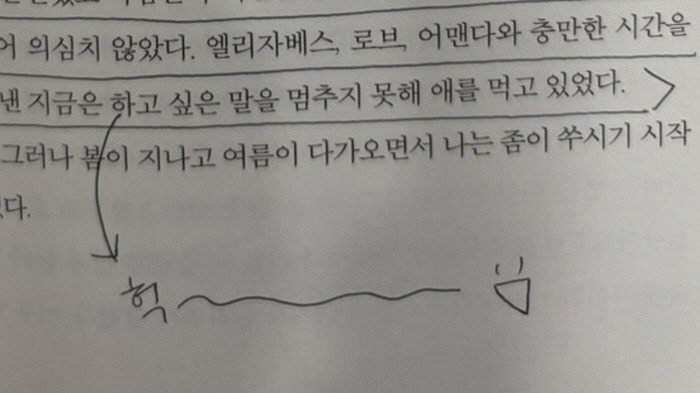 어 의심치 않았다. 엘리자베스, 로브, 어맨다와 충만한 시간을
낸 지금은 하고 싶은 말을 멈추지 못해 애를 먹고 있었다.
그러나 봄이 지나고 여름이 다가오면서 나는 좀이 쑤시기 시작
다.
헉